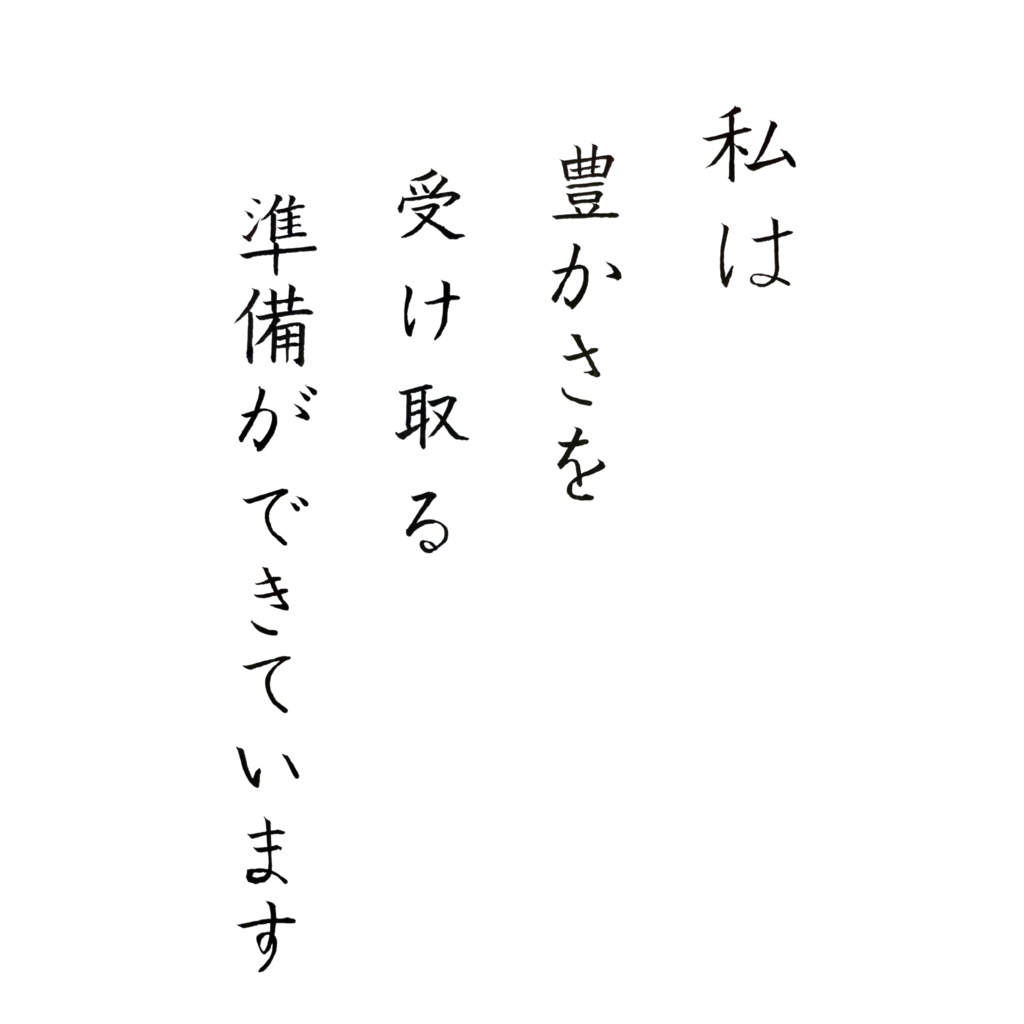 私は
豊かさを
受け取る
準備ができています